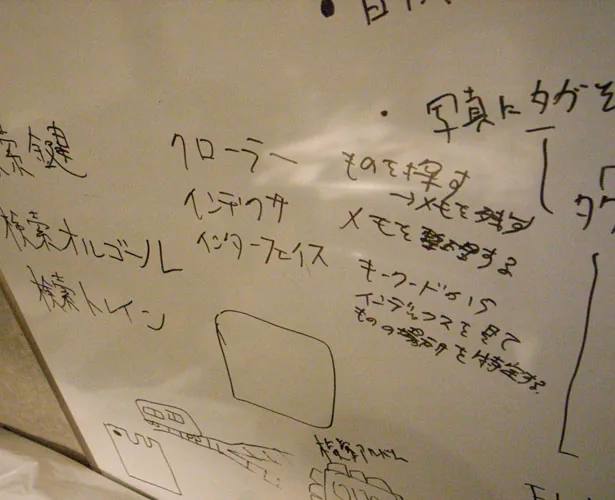 写真にタグを
索鍵
検索オルゴール
検索トレイン
クローラー
インデクサ
インターフェイス
ものを探す
→メモを残す
メモを整理する
キーワードから
インデックスを見て
ものの場所を特定する
検索アルバム